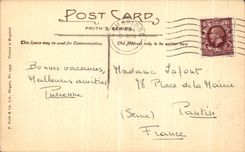 POST CARD.
FRITH'S SERIES.
This Space may be used for Communication.
The address only to be written here.
F. Frith & Co. Ltd., Reigate.
Printed in England
Bonnes vacances,
Meilleures amitiés
Madame Lafont
78 Place de la Mairie
Pantin
(Seine)
France